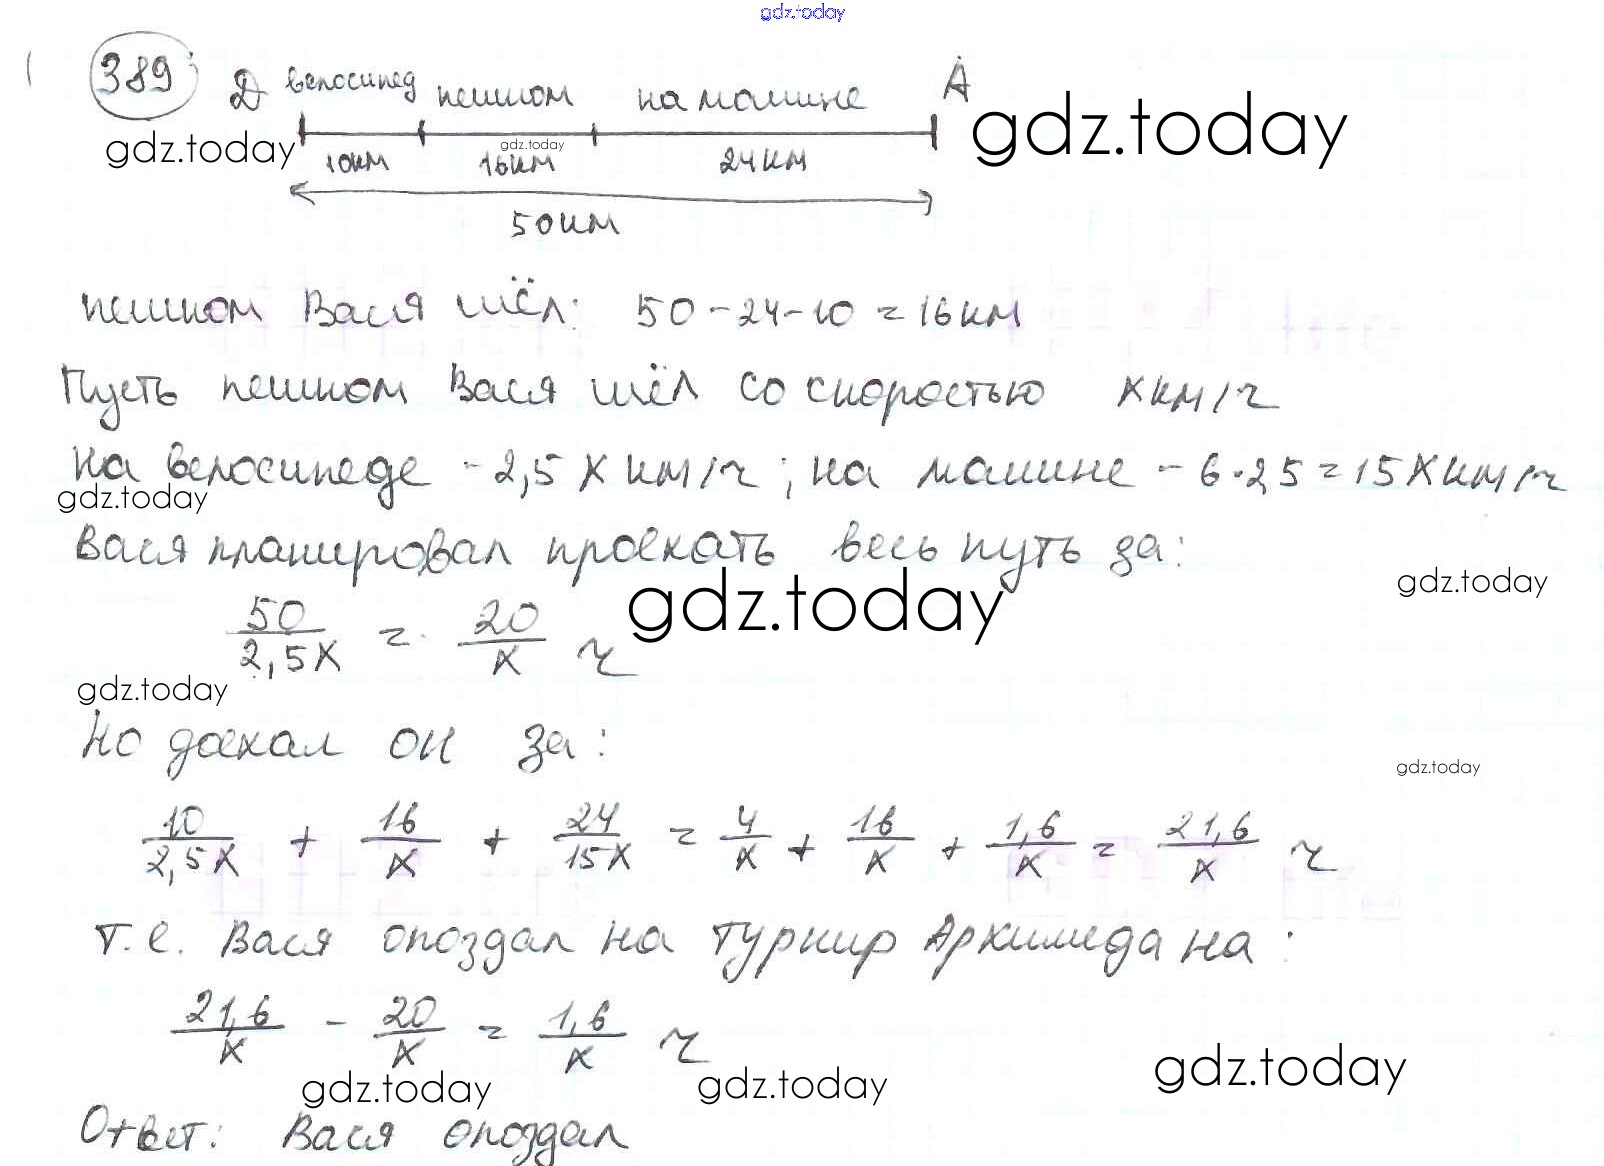 gdz.today
389
Д велосипед пешком на машине А
gdz.today gdz.today gdz.today
10км 16км 24км
50км
пешком Вася шёл: 50-24-10=16км
Пусть пешком Вася шёл со скоростью x км/ч
На велосипеде - 2,5x км/ч; на машине - 6·2,5=15x км/ч
gdz.today
Вася планировал проехать весь путь за:
gdz.today gdz.today
50/2,5x = 20/x ч
gdz.today
Но доехал он за:
gdz.today
10/2,5x + 16/x + 24/15x = 4/x + 16/x + 1,6/x = 21,6/x ч
т.е. Вася опоздал на турнир Архимеда на:
21,6/x - 20/x = 1,6/x ч
gdz.today gdz.today gdz.today
Ответ: Вася опоздал